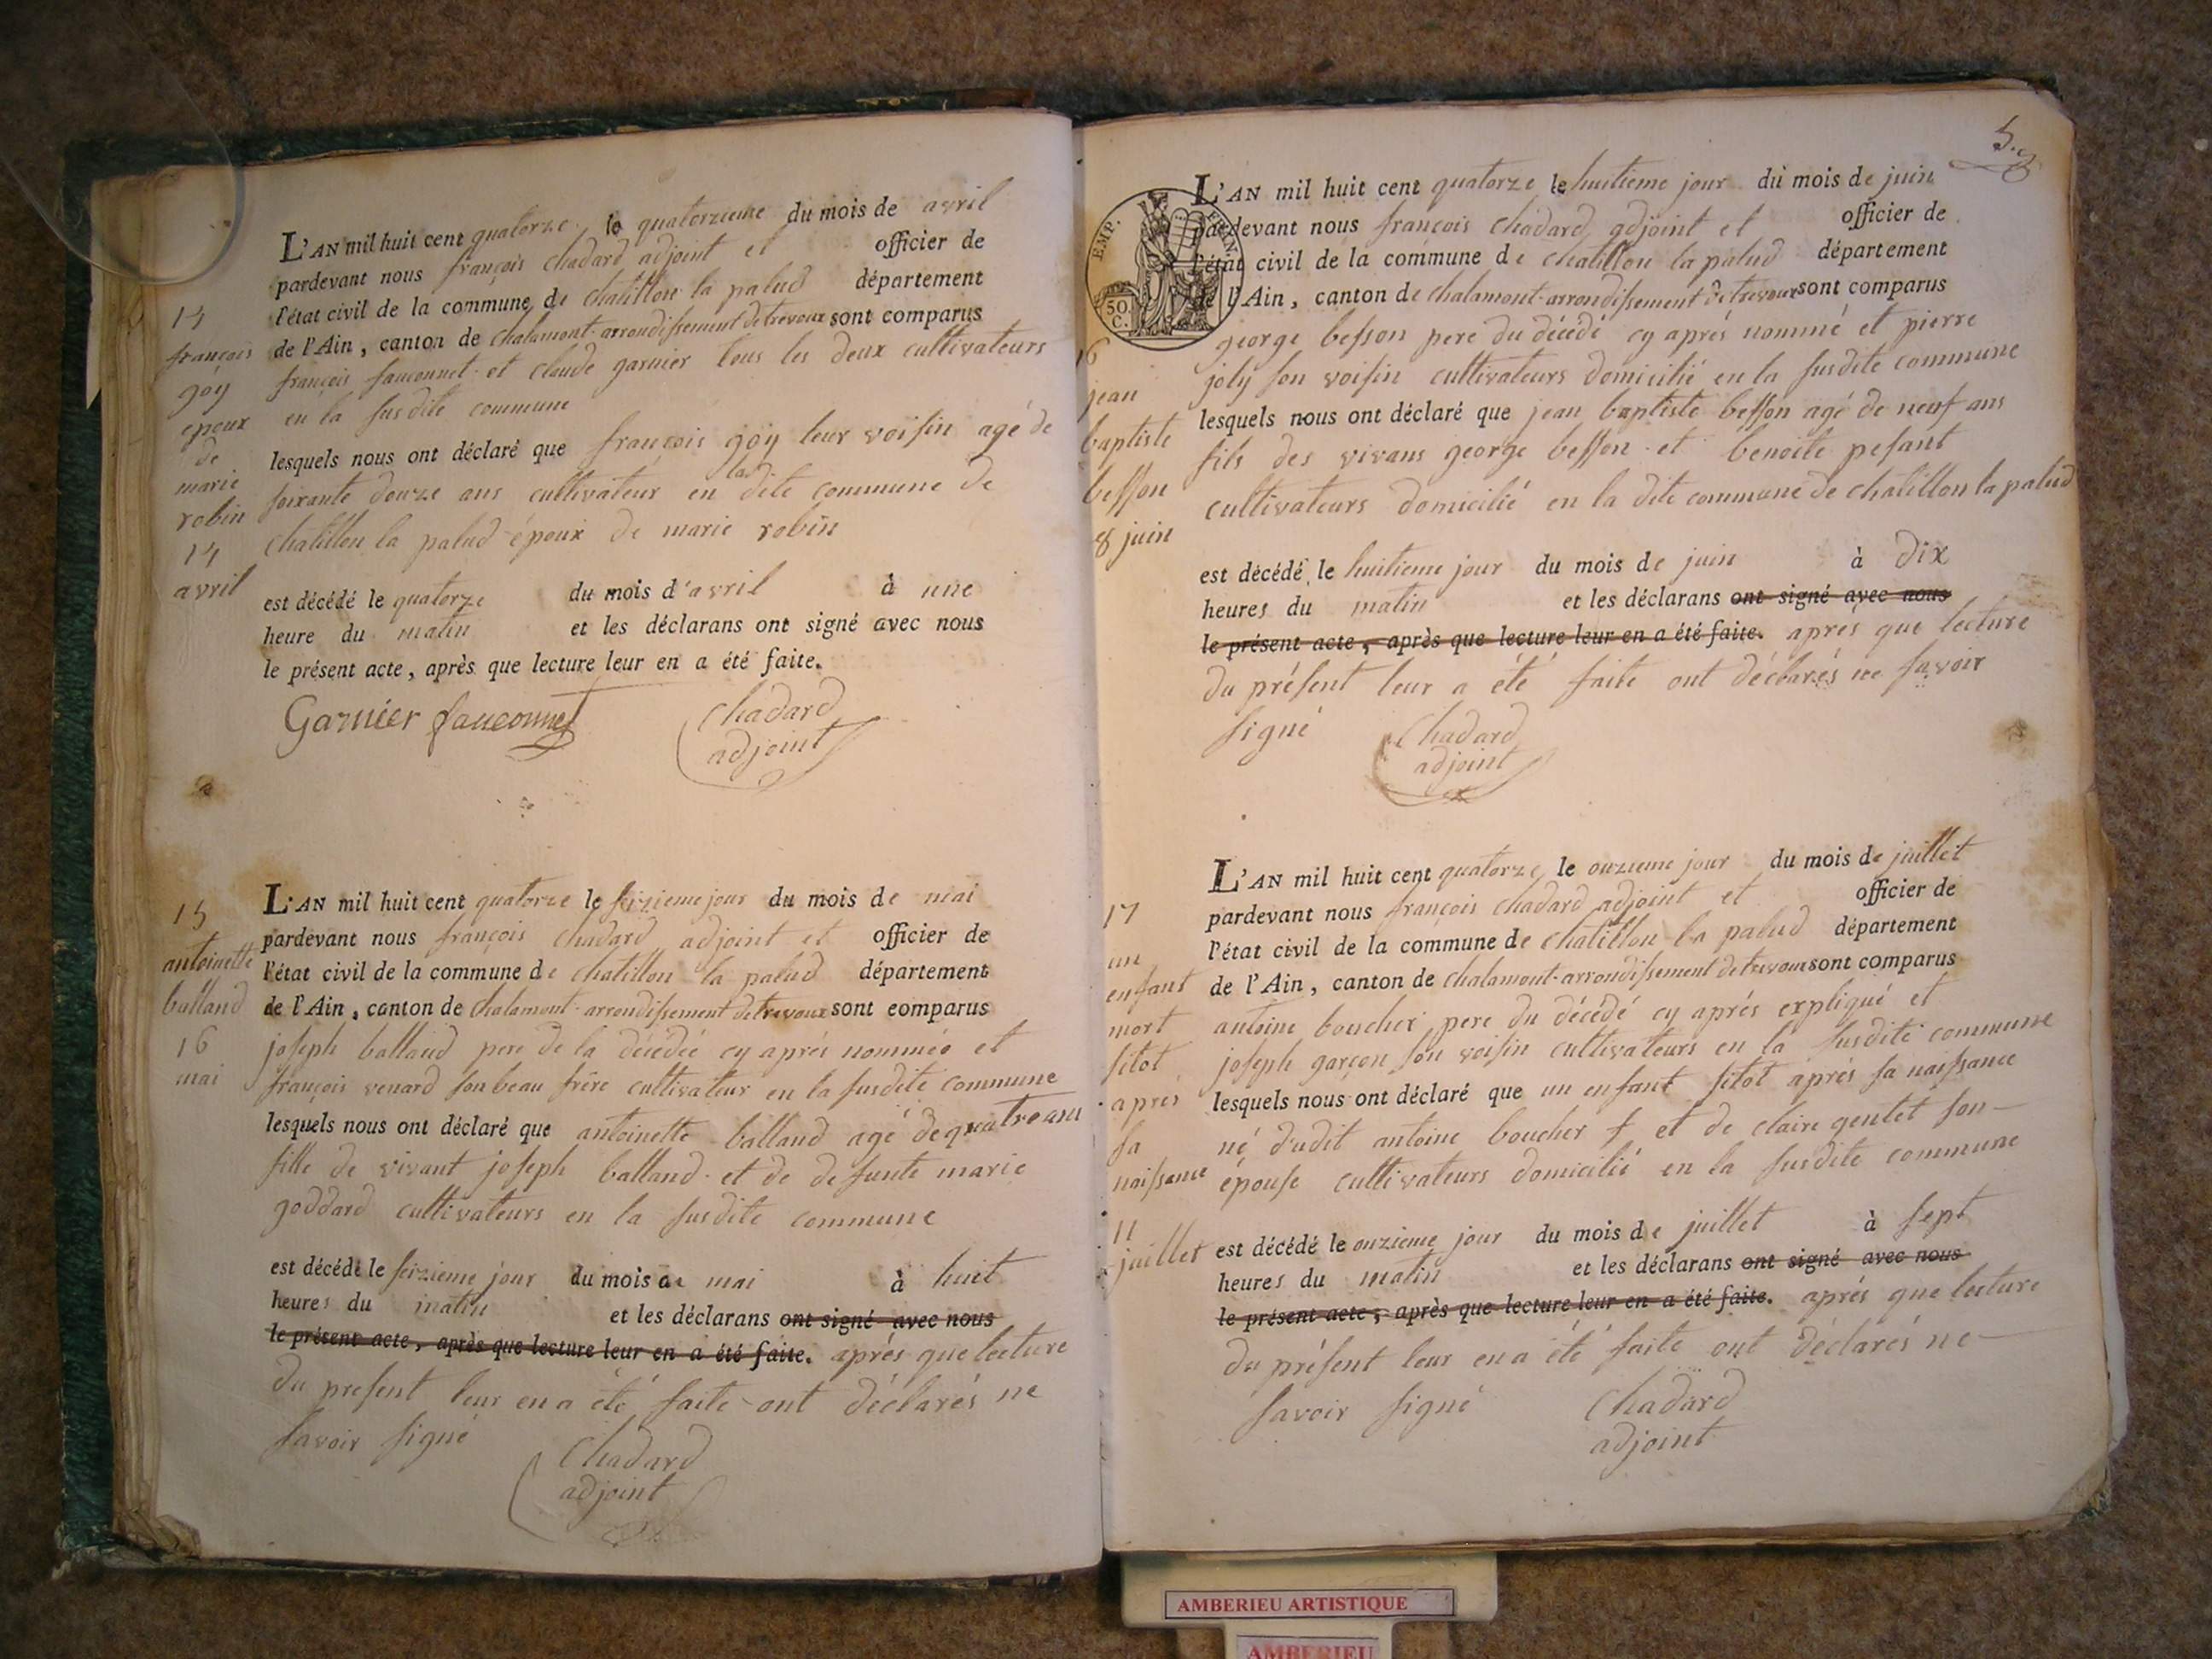 14
françois
goÿ
epoux
de
marie
robin
14
avril
L'AN mil huit cent quatorze le quatorzieme du mois de avril
pardevant nous françois chadard adjoint et officier de
l'état civil de la commune de chatillon la palud département
de l'Ain, canton de chalamont arrondissement de trevoux sont comparus
françois fauconnet et claude garnier tous les deux cultivateurs
en la susdite commune
lesquels nous ont déclaré que françois goÿ leur voisin agé de
soixante douze ans cultivateur en la dite commune de
chatillon la palud époux de marie robin
est décédé le quatorze du mois d'avril à une
heure du matin et les déclarans ont signé avec nous
le présent acte, après que lecture leur en a été faite.
Garnier fauconnet chadard
adjoint
15
antoinette
balland
16
mai
L'AN mil huit cent quatorze le seizieme jour du mois de mai
pardevant nous françois chadard adjoint et officier de
l'état civil de la commune de chatillon la palud département
de l'Ain, canton de chalamont arrondissement de trevoux sont comparus
joseph balland pere de la décédée cy aprés nommée et
françois venard son beau frére cultivateur en la susdite commune
lesquels nous ont déclaré que antoinette balland agé de quatre ans
fille de vivant joseph balland et de defunte marie
goddard cultivateurs en la susdite commune
est décédé le seizieme jour du mois de mai à huit
heures du matin et les déclarans ont signé avec nous
le présent acte, après que lecture leur en a été faite. aprés que lecture
du present leur en a été faite ont déclarés ne
savoir signé
chadard
adjoint
5.
EMP. FRAN
50.
C.
16
jean
baptiste
besson
8 juin
L'AN mil huit cent quatorze le huitieme jour du mois de juin
pardevant nous françois chadard adjoint et officier de
l'état civil de la commune de chatillon la palud département
de l'Ain, canton de chalamont arrondissement de trevoux sont comparus
george besson pere du décédé cy aprés nommé et pierre
joly son voisin cultivateurs domicilié en la susdite commune
lesquels nous ont déclaré que jean baptiste besson agé de neuf ans
fils des vivans george besson et benoite pesant
cultivateurs domicilié en la dite commune de chatillon la palud
est décédé le huitieme jour du mois de juin à dix
heures du matin et les déclarans ont signé avec nous
le présent acte, après que lecture leur en a été faite. aprés que lecture
du présent leur a été faite ont déclarés ne savoir
signé
chadard
adjoint
17
un
enfant
mort
sitot
aprés
sa
naissance
11
juillet
L'AN mil huit cent quatorze le onzieme jour du mois de juillet
pardevant nous françois chadard adjoint et officier de
l'état civil de la commune de chatillon la palud département
de l'Ain, canton de chalamont arrondissement de trevoux sont comparus
antoine boucher pere du décédé cy aprés expliqué et
joseph garçon son voisin cultivateurs en la susdite commune
lesquels nous ont déclaré que un enfant sitot aprés sa naissance
né dudit antoine boucher et de claire gentet son
épouse cultivateurs domicilié en la susdite commune
est décédé le onzieme jour du mois de juillet à sept
heures du matin et les déclarans ont signé avec nous
le présent acte, après que lecture leur en a été faite. aprés que lecture
du présent leur en a été faite ont déclarés ne
savoir signé chadard
adjoint
AMBERIEU ARTISTIQUE
AMBERIEU